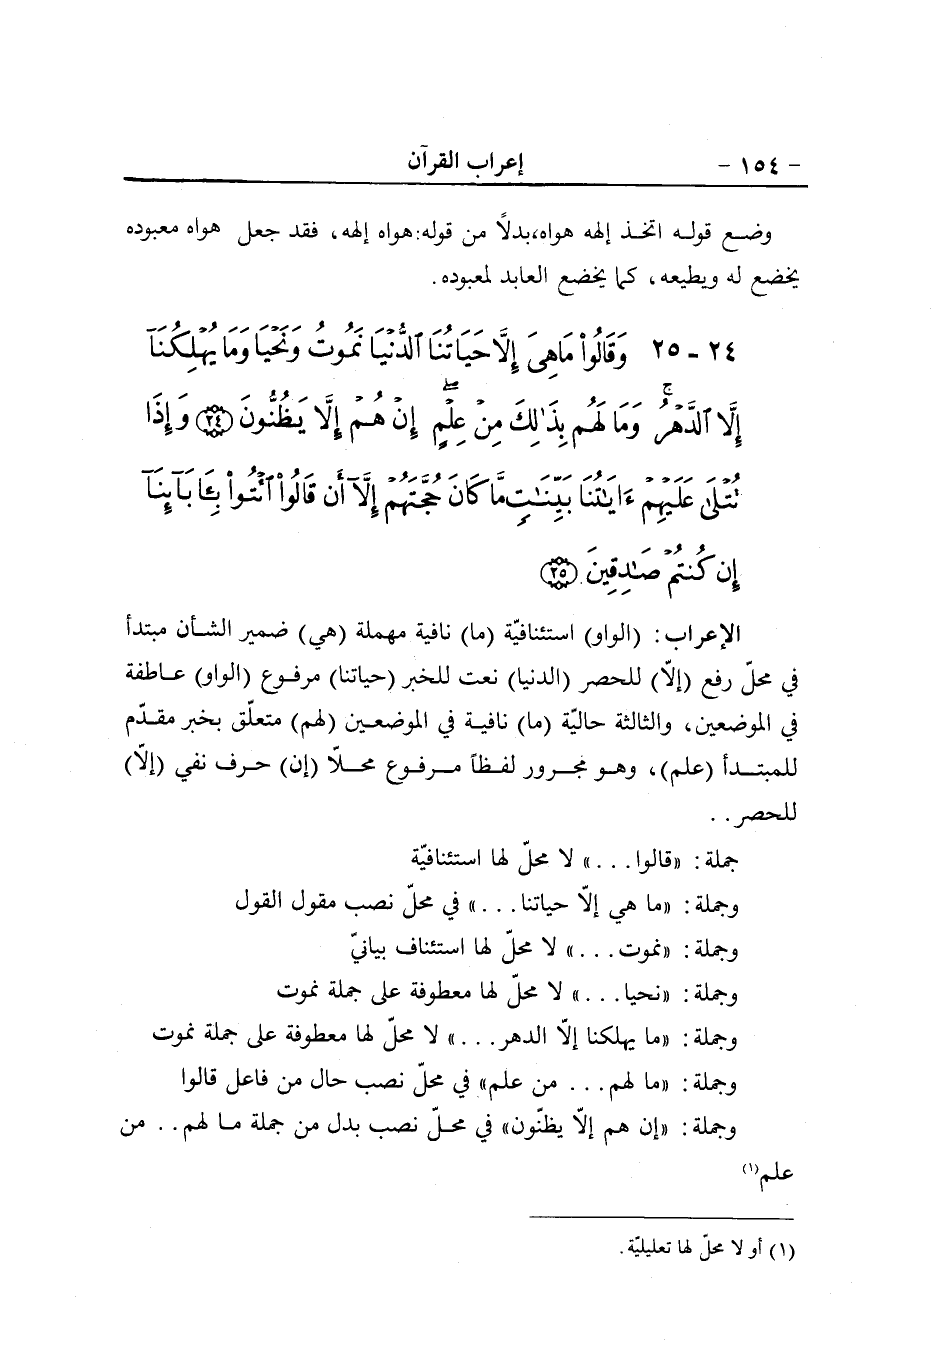 - ١٥٤ - إعراب القرآن
وضع قوله اتخذ إلهه هواه،بدلاً من قوله:هواه إلهه، فقد جعل هواه معبوده
يخضع له ويطيعه، كما يخضع العابد لمعبوده.
٢٤ - ٢٥ وَقَالُوا۟ مَا هِىَ إِلَّا حَيَاتُنَا ٱلدُّنْيَا نَمُوتُ وَنَحْيَا وَمَا يُهْلِكُنَآ
إِلَّا ٱلدَّهْرُ ۚ وَمَا لَهُم بِذَٰلِكَ مِنْ عِلْمٍ ۖ إِنْ هُمْ إِلَّا يَظُنُّونَ ﴿٢٤﴾ وَإِذَا
تُتْلَىٰ عَلَيْهِمْ ءَايَٰتُنَا بَيِّنَٰتٍ مَّا كَانَ حُجَّتَهُمْ إِلَّآ أَن قَالُوا۟ ٱئْتُوا۟ بِـَٔابَآئِنَآ
إِن كُنتُمْ صَٰدِقِينَ ﴿٢٥﴾
الإعراب: (الواو) استئنافيّة (ما) نافية مهملة (هي) ضمير الشأن مبتدأ
في محلّ رفع (إلاّ) للحصر (الدنيا) نعت للخبر (حياتنا) مرفوع (الواو) عاطفة
في الموضعين، والثالثة حاليّة (ما) نافية في الموضعين (لهم) متعلّق بخبر مقدّم
للمبتدأ (علم)، وهو مجرور لفظاً مرفوع محلاّ (إن) حرف نفي (إلاّ)
للحصر..
جملة: «قالوا...» لا محلّ لها استئنافيّة
وجملة: «ما هي إلاّ حياتنا...» في محلّ نصب مقول القول
وجملة: «نموت...» لا محلّ لها استئناف بيانيّ
وجملة: «نحيا...» لا محلّ لها معطوفة على جملة نموت
وجملة: «ما يهلكنا إلاّ الدهر...» لا محلّ لها معطوفة على جملة نموت
وجملة: «ما لهم... من علم» في محلّ نصب حال من فاعل قالوا
وجملة: «إن هم إلاّ يظنّون» في محلّ نصب بدل من جملة ما لهم.. من
علم(١)
(١) أو لا محلّ لها تعليليّة.